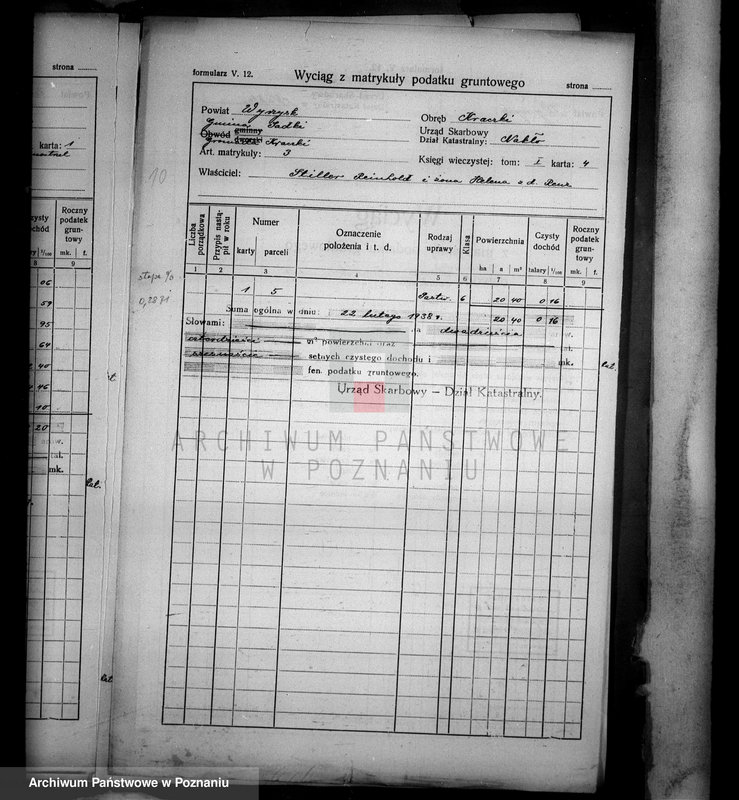 strona
karta: 1
czysty
dochód
Roczny
podatek
grun-
towy
talary 1/100 mk. f.
8 9
06
59
95
64
40
46
10
20
tal.
mk.
formularz V. 12. Wyciąg z matrykuły podatku gruntowego strona
Powiat Wyrzysk Obręb Kraczki
Gmina Sadki
Obwód gminny Urząd Skarbowy
Gromada Kraczki Dział Katastralny: Nakło
Art. matrykuły: 3 Księgi wieczystej: tom: I karta: 4
Właściciel: Stiller Reinhold i żona Helena z d.
10
Liczba porządkowa Przypis nastąpił w roku Numer karty parceli Oznaczenie położenia i t. d. Rodzaj uprawy Klasa Powierzchnia ha a m² Czysty dochód talary 1/100 Roczny podatek gruntowy mk. f.
1 2 3 4 5 6 7 8 9
0,2871
1 5 6 20 40 0 16
Suma ogólna w dniu: 22 lutego 1938 r. 20 40 0 16
Słowami: dwadzieścia
czterdzieści m² powierzchni oraz tal.
szesnaście setnych czystego dochodu i mk.
fen. podatku gruntowego.
Urząd Skarbowy — Dział Katastralny.
ARCHIWUM PAŃSTWOWE
W POZNANIU
Archiwum Państwowe w Poznaniu